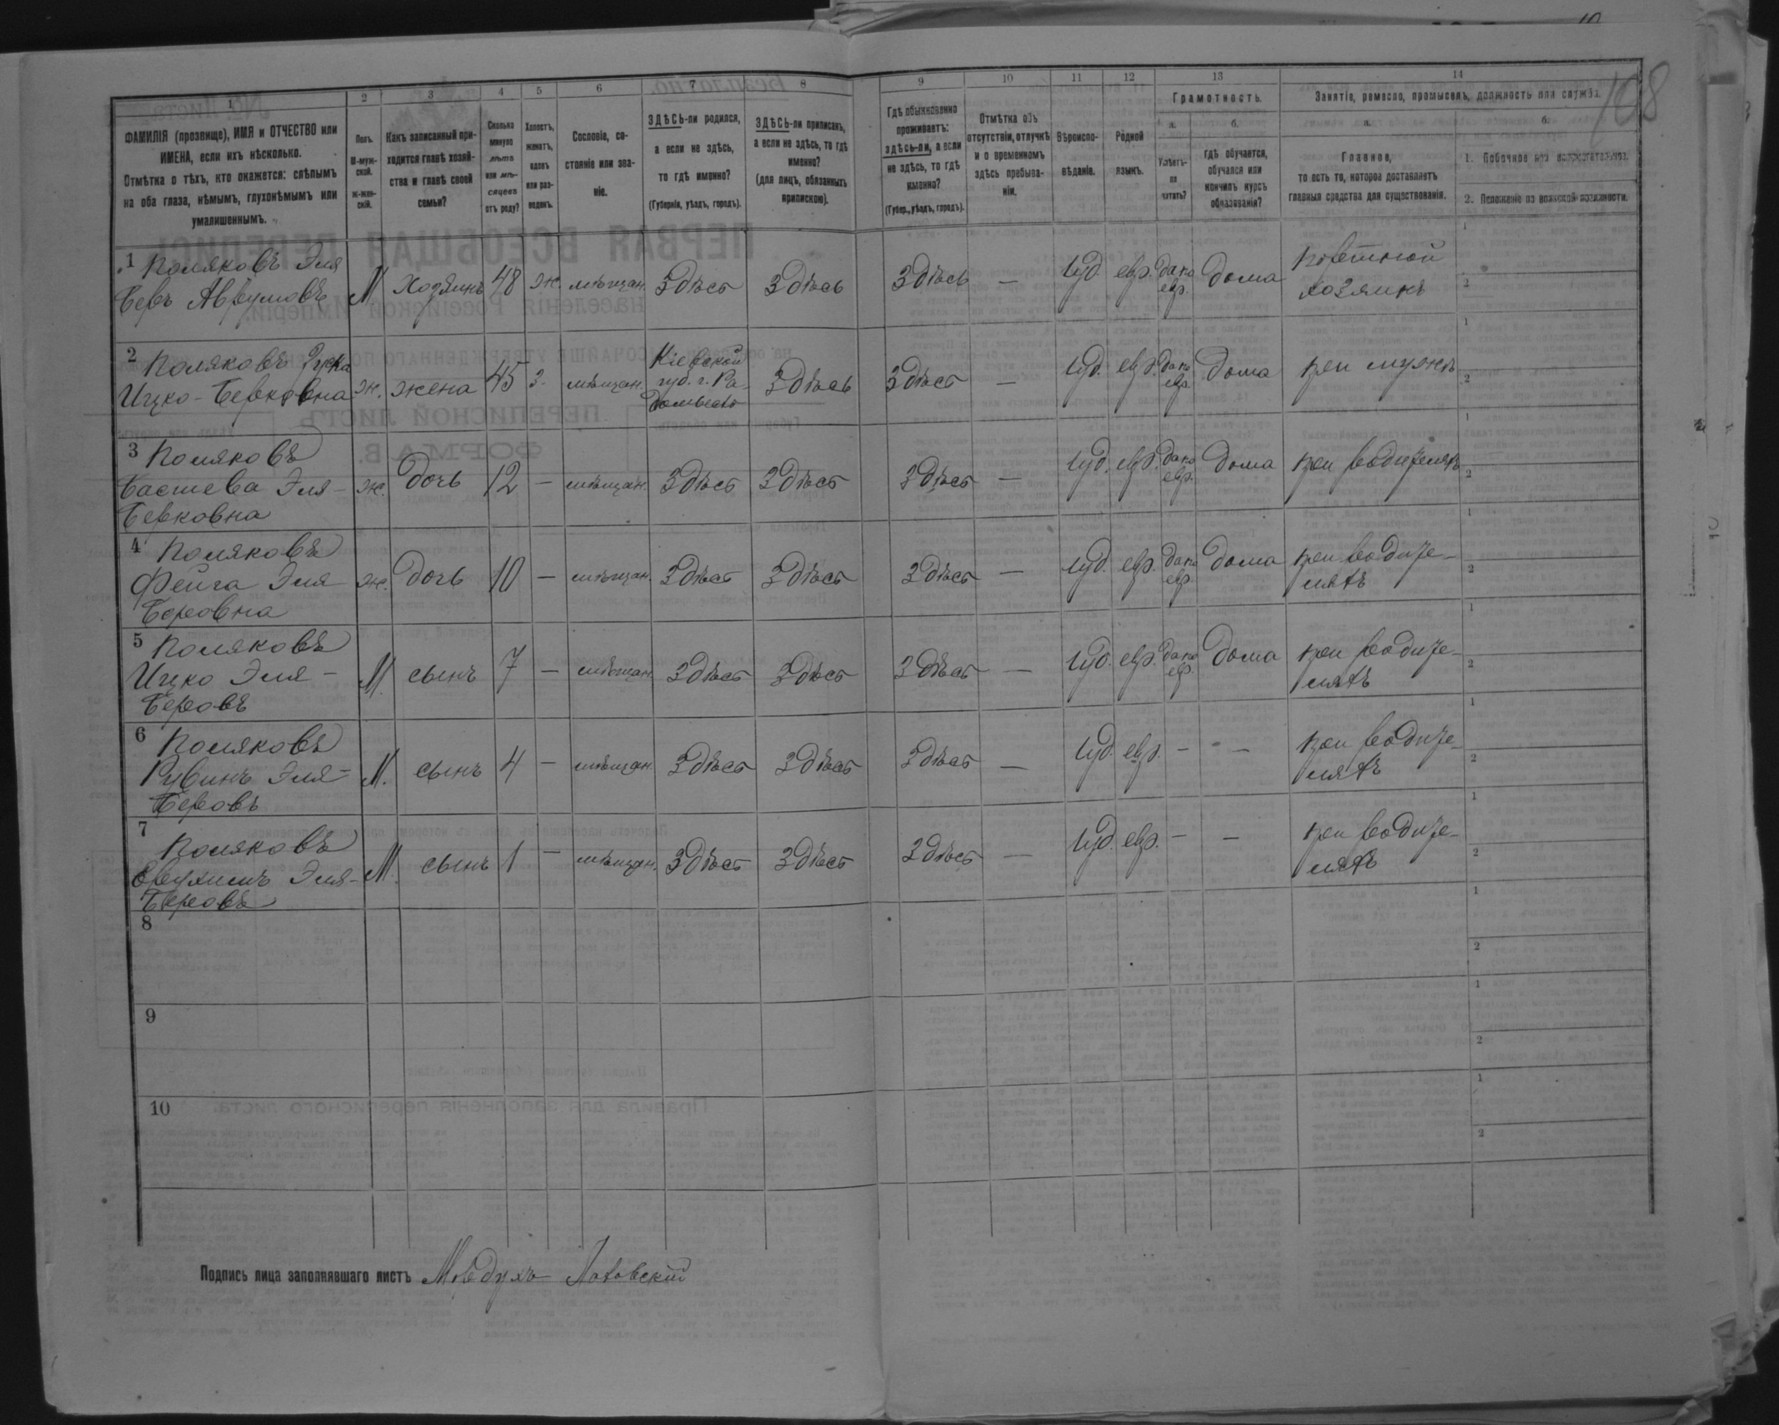 108
1 2 3 4 5 6 7 8 9 10 11 12 13 14
ФАМИЛІЯ (прозвище), ИМЯ и ОТЧЕСТВО или
ИМЕНА, если ихъ нѣсколько.
Отмѣтка о тѣхъ, кто окажется: слѣпымъ
на оба глаза, нѣмымъ, глухонѣмымъ или
умалишеннымъ.
Полъ.
М-муж-
ской.
Ж-жен-
скій.
Какъ записанный при-
ходится главѣ хозяй-
ства и главѣ своей
семьи?
Сколько
минуло
лѣтъ
или мѣ-
сяцевъ
отъ роду?
Холостъ,
женатъ,
вдовъ
или раз-
веденъ.
Сословіе, со-
стояніе или зва-
ніе.
ЗДѢСЬ-ли родился,
а если не здѣсь,
то гдѣ именно?
(Губернія, уѣздъ, городъ).
ЗДѢСЬ-ли приписанъ,
а если не здѣсь, то гдѣ
именно?
(для лицъ, обязанныхъ
припискою).
Гдѣ обыкновенно
проживаетъ:
здѣсь-ли, а если
не здѣсь, то гдѣ
именно?
(Губер., уѣздъ, городъ).
Отмѣтка объ
отсутствіи, отлучкѣ
и о временномъ
здѣсь пребыва-
ніи.
Вѣроиспо-
вѣданіе.
Родной
языкъ.
Грамотность.
а.
Умѣетъ-
ли
читать?
б.
гдѣ обучается,
обучался или
кончилъ курсъ
образованія?
Занятіе, ремесло, промыселъ, должность или служба.
а.
Главное,
то есть то, которое доставляетъ
главныя средства для существованія.
б.
1. Побочное или вспомогательное.
2. Положеніе по воинской повинности.
1 Поляковъ Эля
Беръ Аврумовъ М Хозяинъ 48 ж. мѣщан. Здѣсь Здѣсь Здѣсь — Іуд. евр. да по евр. дома
хозяинъ
2 Поляковъ
Ицко-Берковна ж. жена 45 З. мѣщан. Кіевской
губ. г. Ра-
домысль Здѣсь Здѣсь — Іуд. евр. да по евр. дома при мужѣ
3 Поляковъ
Басшева Эля-
Берковна ж. дочь 12 — мѣщан. Здѣсь Здѣсь Здѣсь — Іуд. евр. да по евр. дома при родителяхъ
4 Поляковъ
Фейга Эля-
Беровна ж. дочь 10 — мѣщан. Здѣсь Здѣсь Здѣсь — Іуд. евр. да по евр. дома при родите-
ляхъ
5 Поляковъ
Ицко Эля-
Беровъ М. сынъ 7 — мѣщан. Здѣсь Здѣсь Здѣсь — Іуд. евр. да по евр. дома при родите-
ляхъ
6 Поляковъ
Рувинъ Эля-
Беровъ М. сынъ 4 — мѣщан. Здѣсь Здѣсь Здѣсь — Іуд. евр. — — при родите-
ляхъ
7 Поляковъ
Эля-
Беровъ М. сынъ 1 — мѣщан. Здѣсь Здѣсь Здѣсь — Іуд. евр. — — при родите-
ляхъ
8
9
10
Подпись лица заполнявшаго листъ